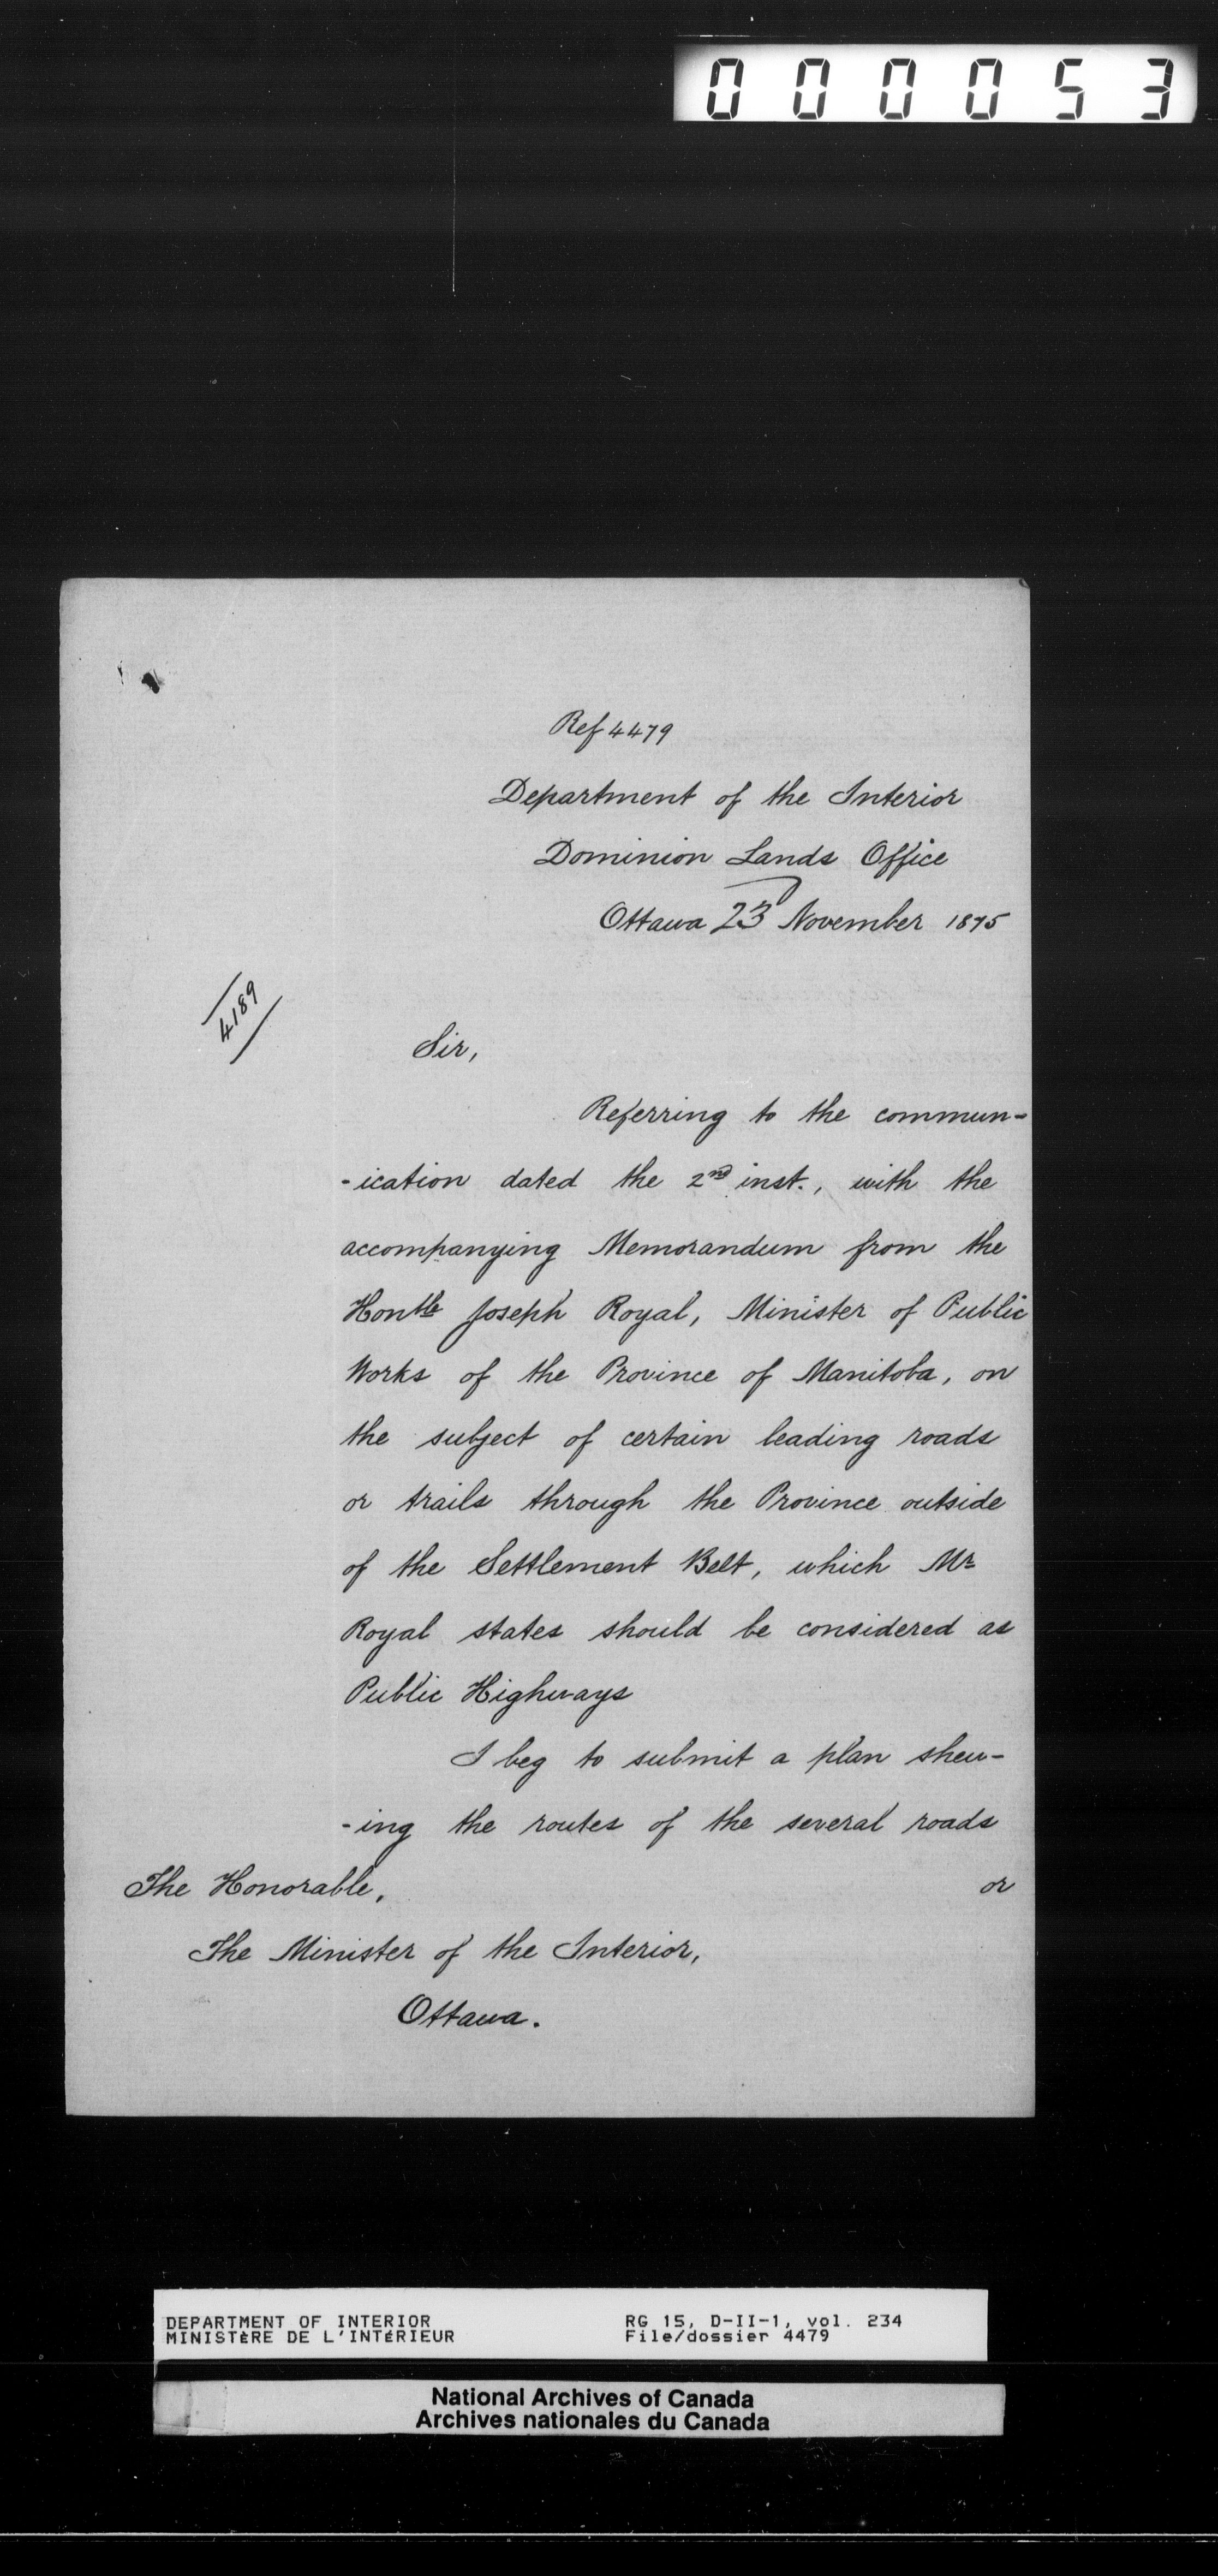 000053
Ref 4479
Department of the Interior
Dominion Lands Office
Ottawa 23rd November 1875
4189
Sir,
Referring to the commun-
-ication dated the 2nd inst., with the
accompanying Memorandum from the
Honble Joseph Royal, Minister of Public
Works of the Province of Manitoba, on
the subject of certain leading roads
or trails through the Province outside
of the Settlement Belt, which Mr
Royal states should be considered as
Public Highways
I beg to submit a plan shew-
-ing the routes of the several roads
or
The Honorable,
The Minister of the Interior,
Ottawa.
DEPARTMENT OF INTERIOR RG 15, D-II-1, vol. 234
MINISTÈRE DE L'INTÉRIEUR File/dossier 4479
National Archives of Canada
Archives nationales du Canada